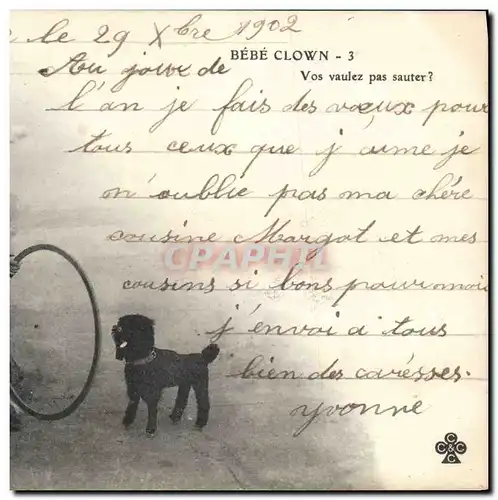 le 29 Xbre 1902
BÉBÉ CLOWN - 3
Au jour de
Vos vaulez pas sauter?
l'an je fais des vœux pour
tous ceux que j'aime je
n'oublie pas ma chére
cousine Margot et mes
CPARAMA
cousins si bons pour moi
j'envoi a tous
bien des carésses.
yvonne
C C C C